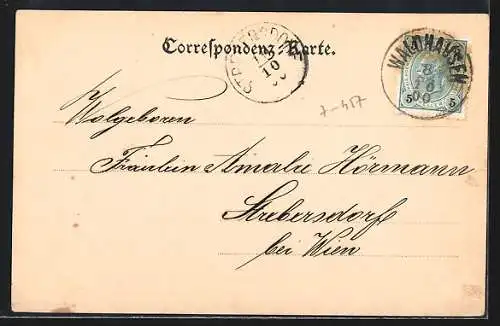 Correspondenz-Karte.
WALDHAUSEN
8
00
5 5
10
7-457
Wolgeboren
Fräulein Amalie Hörmann
Strebersdorf
bei Wien